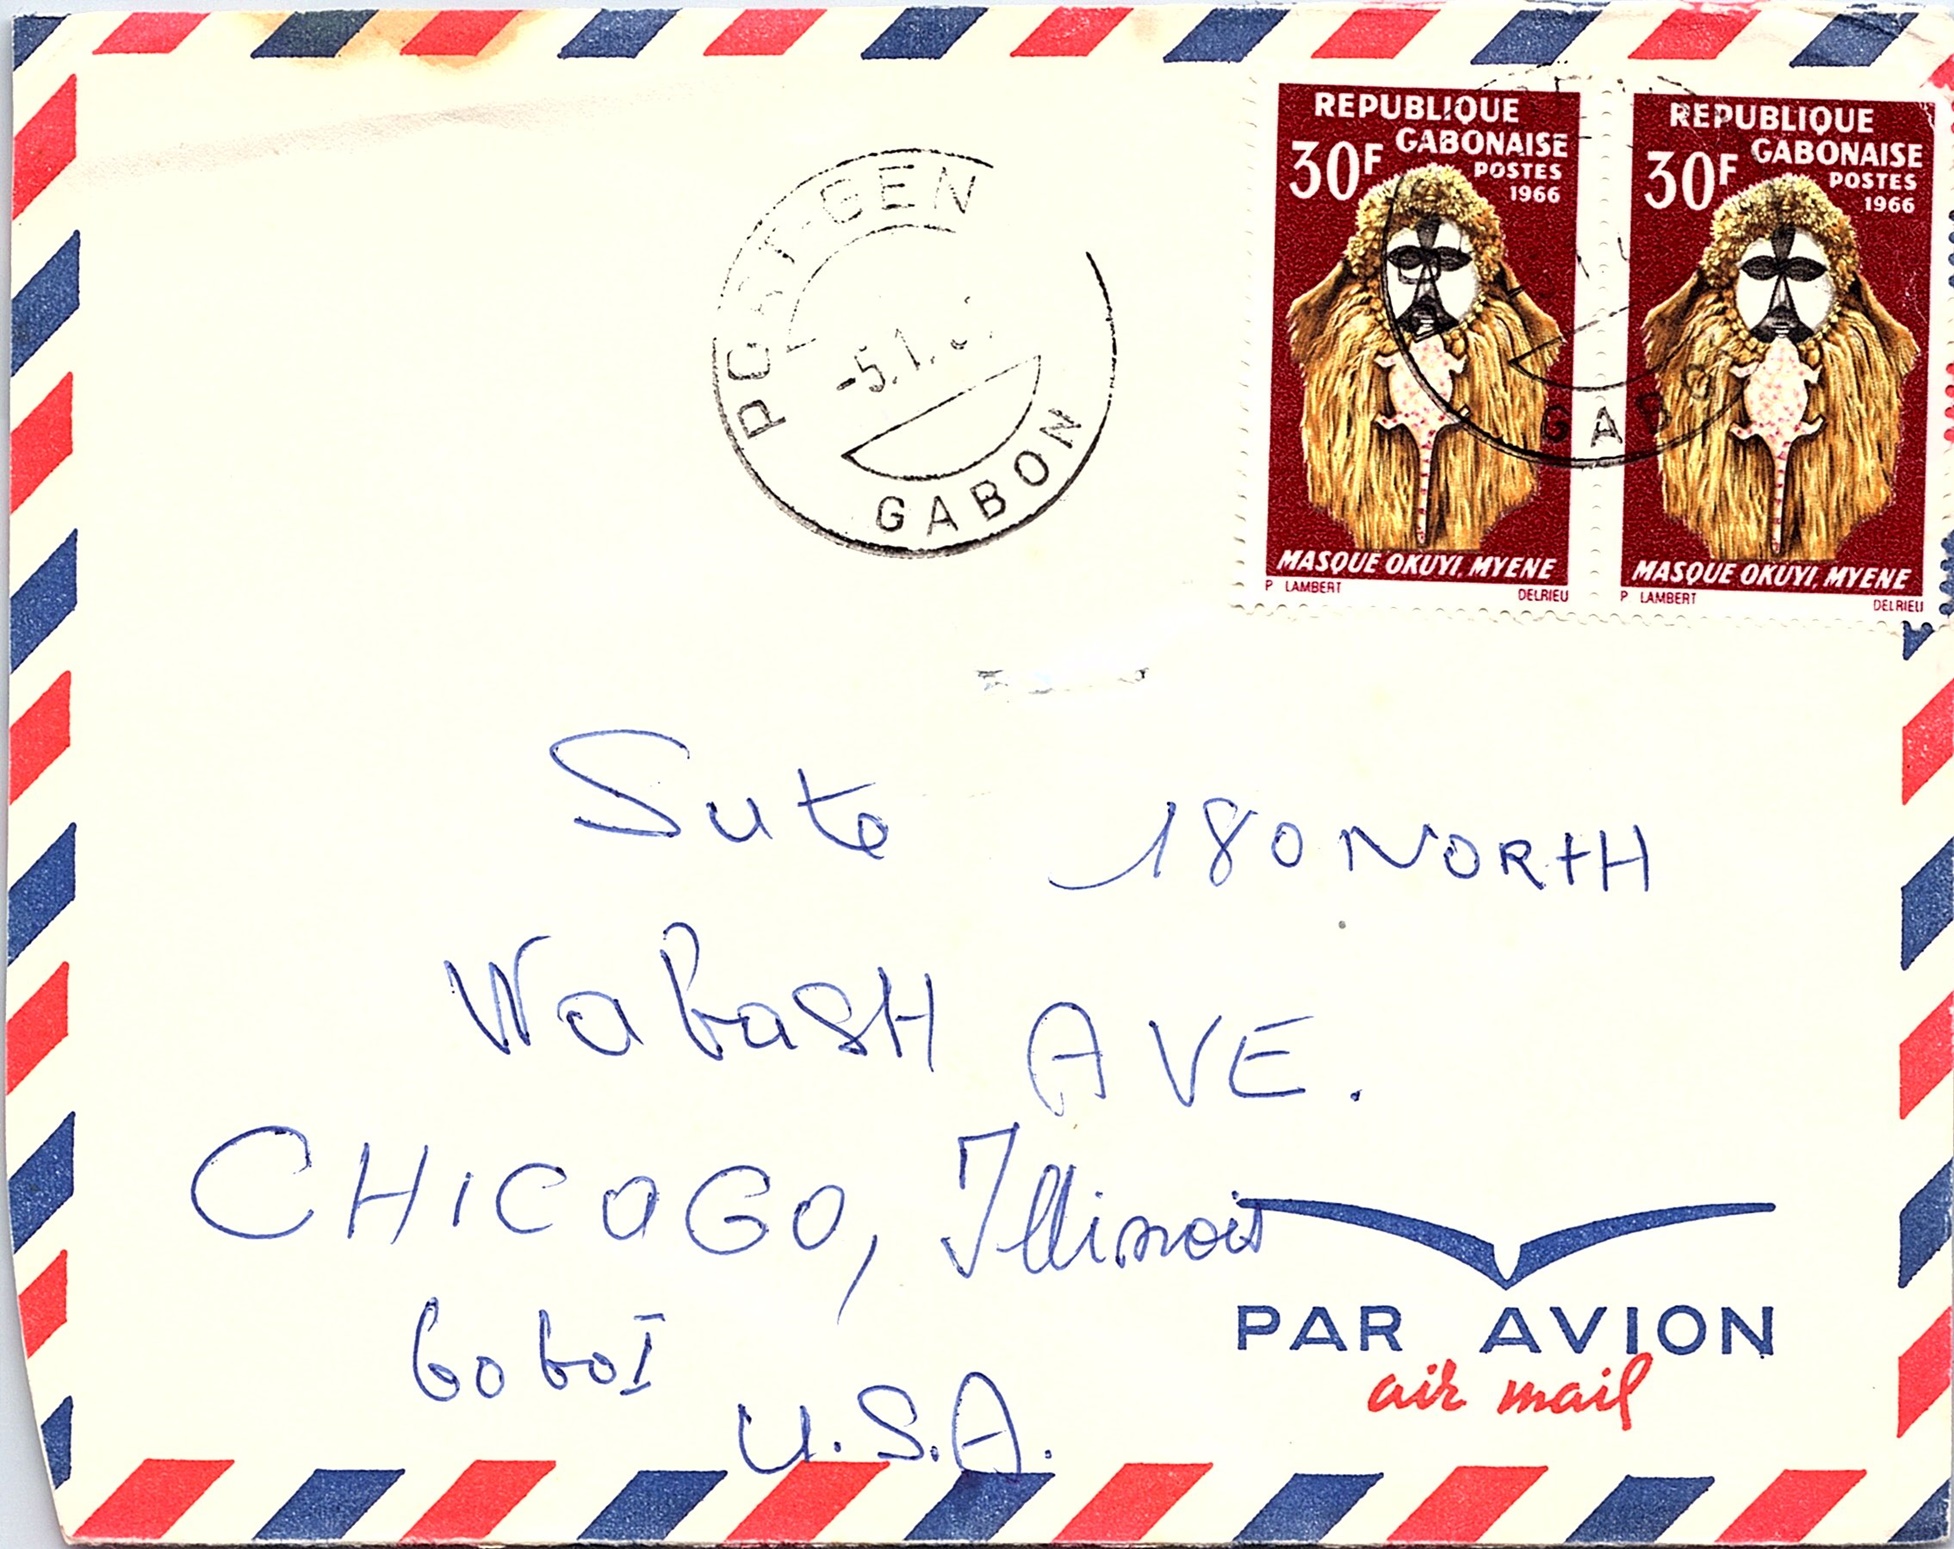 REPUBLIQUE
GABONAISE
30F
POSTES
1966
MASQUE OKUYI, MYENE
P LAMBERT
DELRIEU
REPUBLIQUE
GABONAISE
30F
POSTES
1966
MASQUE OKUYI, MYENE
P LAMBERT
DELRIEU
PORT-GEN
-5.1.
GABON
GABO
Sute 180 NORTH
WabasH AVE.
CHICOGO, Illinois
60601
U.S.A.
PAR AVION
air mail